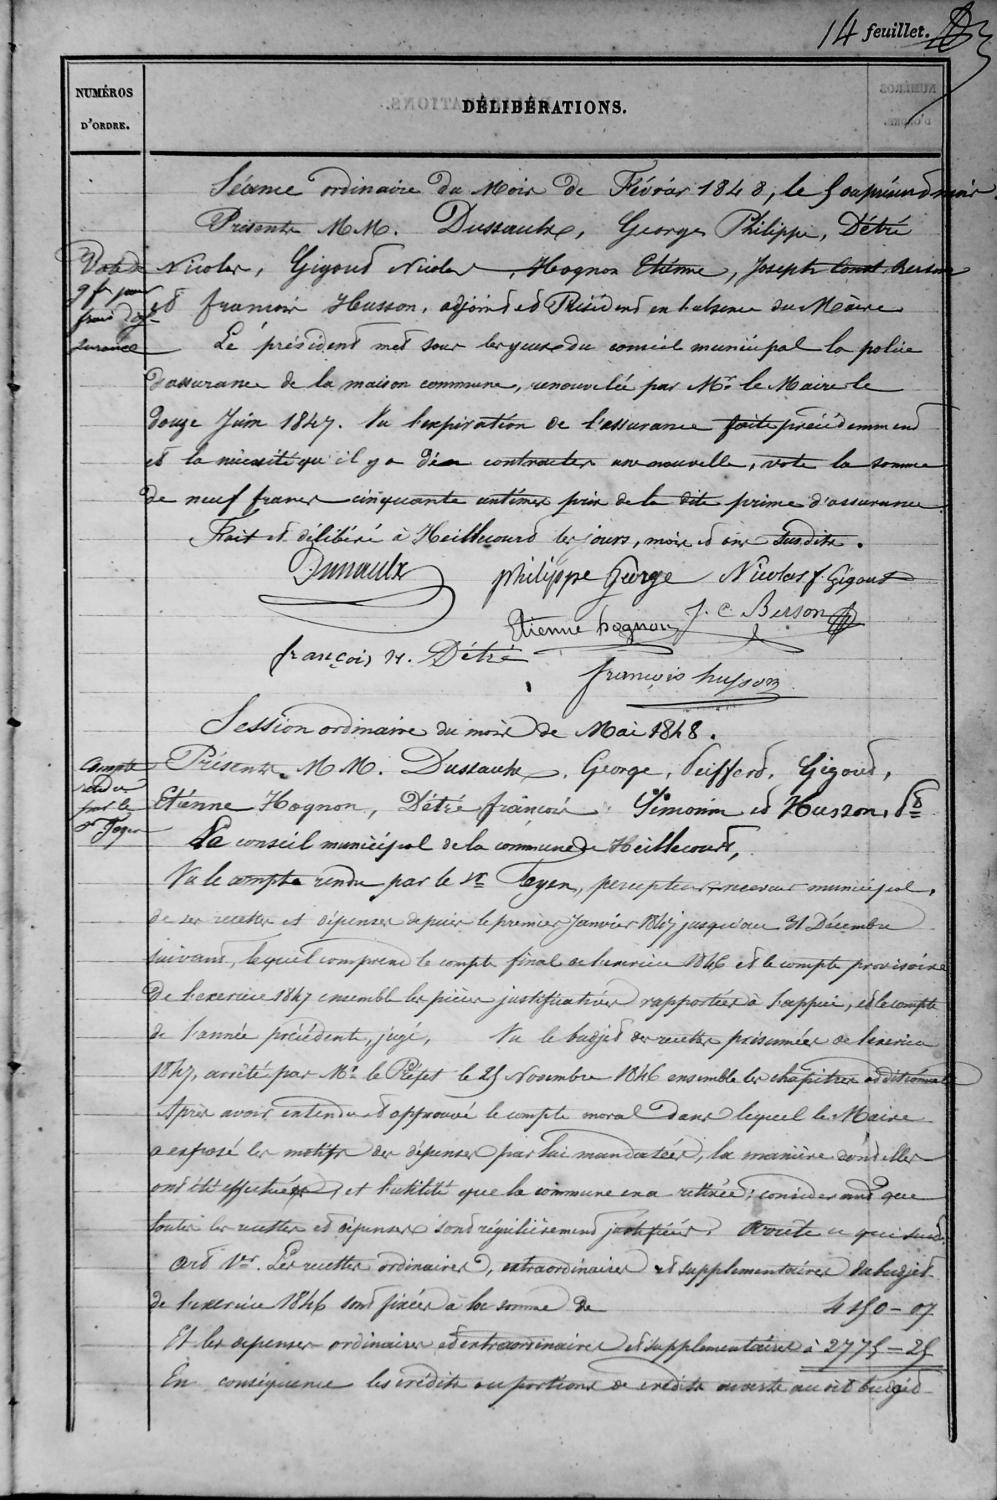 14 feuillet.
NUMÉROS
D'ORDRE.
DÉLIBÉRATIONS.
Séance ordinaire du Mois de Février 1848, le
Présents MM. Dussaulx, George Philippe, Détré
Nicolas, Gigout Nicolas, Hognon Etiénne, Joseph Const. Berson
et francois Husson, adjoint et Président en l'absence du Maire
Vote de
9 f pour
frais d'as-
surance
Le président met sous les yeux du conseil municipal la police
d'assurance de la maison commune, renouvelée par Mr. le Maire le
douze Juin 1847. Vu l'expiration de l'assurance faite précédemment
et la nécessité qu'il y a d'en contracter une nouvelle, vote la somme
de neuf francs cinquante centimes prix de la dite prime d'assurance.
Fait et délibéré à Heillecourt les jours, mois et an susdits.
Dussaulx
philippe George
Nicolas f. Gigout
Etienne hognon
J. C Berson
françois n. Détré
françois husson
Session ordinaire du mois de Mai 1848.
Compte
rendu
par le
Sr Fayen
Présents MM. Dussaulx, George, Peiffert, Gigout,
Etiénne Hognon, Détré françois Simonin et Husson,
Le conseil municipal de la commune de Heillecourt,
Vu le compte rendu par le Sr Fayen, percepteur, receveur municipal,
de ses recettes et dépenses depuis le premier Janvier 1847 jusqu'au 31 Décembre
suivant, lequel comprend le compte final de l'exercice 1846 et le compte provisoire
De l'exercice 1847 ensemble les pièces justificatives rapportées à l'appui, et le compte
de l'année précédente, jugé, Vu le budjet des recettes présumées de l'exercice
1847, arrêté par Mr. le Préfet le 25 Novembre 1846 ensemble les chapitres additionnels
Après avoir entendu et approuvé le compte moral dans lequel le Maire
a exposé les motifs des dépenses par lui mandatées, la manière dont elles
ont été effectuées, et l'utilité que la commune en a retirée; considérant que
toutes les recettes et dépenses sont régulièrement justifiées. Arrête ce qui suit.
Art 1er. Les recettes ordinaires, extraordinaires et supplementaires du budjet
de l'exercice 1846 sont fixées à la somme de 4150 - 07
Et les depenses ordinaires et extraordinaires et supplementaires à 2775 - 25
En conséquence les crédits ou portions de crédits ouverts au dit budjet